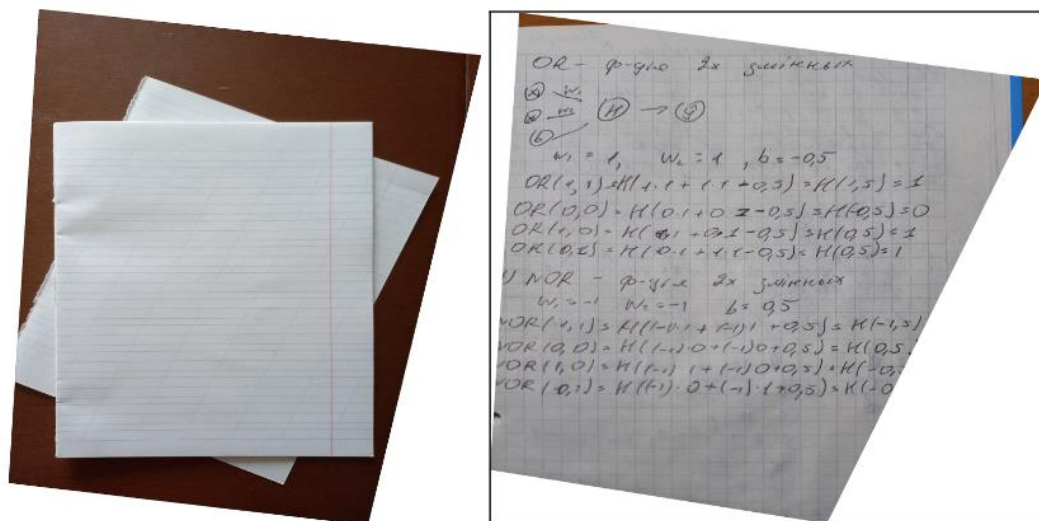 OR - ф-ція 2х змінных
x₁ w₁
x₂ w₂ H → ŷ
b
w₁ = 1, w₂ = 1, b = -0,5
OR(1,1) = H(1·1 + 1·1 + 0,5) = H(1,5) = 1
OR(0,0) = H(0·1 + 0·1 - 0,5) = H(-0,5) = 0
OR(1,0) = H(1·1 + 0·1 - 0,5) = H(0,5) = 1
OR(0,1) = H(0·1 + 1·1 - 0,5) = H(0,5) = 1
) NOR - ф-ция 2х змінных
w₁ = -1 w₂ = -1 b = 0,5
NOR(1,1) = H((-1)·1 + (-1)·1 + 0,5) = H(-1,5)
NOR(0,0) = H((-1)·0 + (-1)0 + 0,5) = H(0,5
NOR(1,0) = H((-1)·1 + (-1)0 + 0,5) = H(-0,
NOR(0,1) = H((-1)·0 + (-1)·1 + 0,5) = H(-0